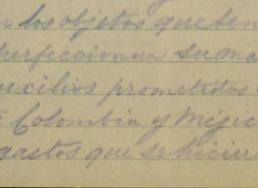 los objetos que ten
perfeccionar su ma
uxilios prometidos
Colombia y Méjic
gastos que se hicier